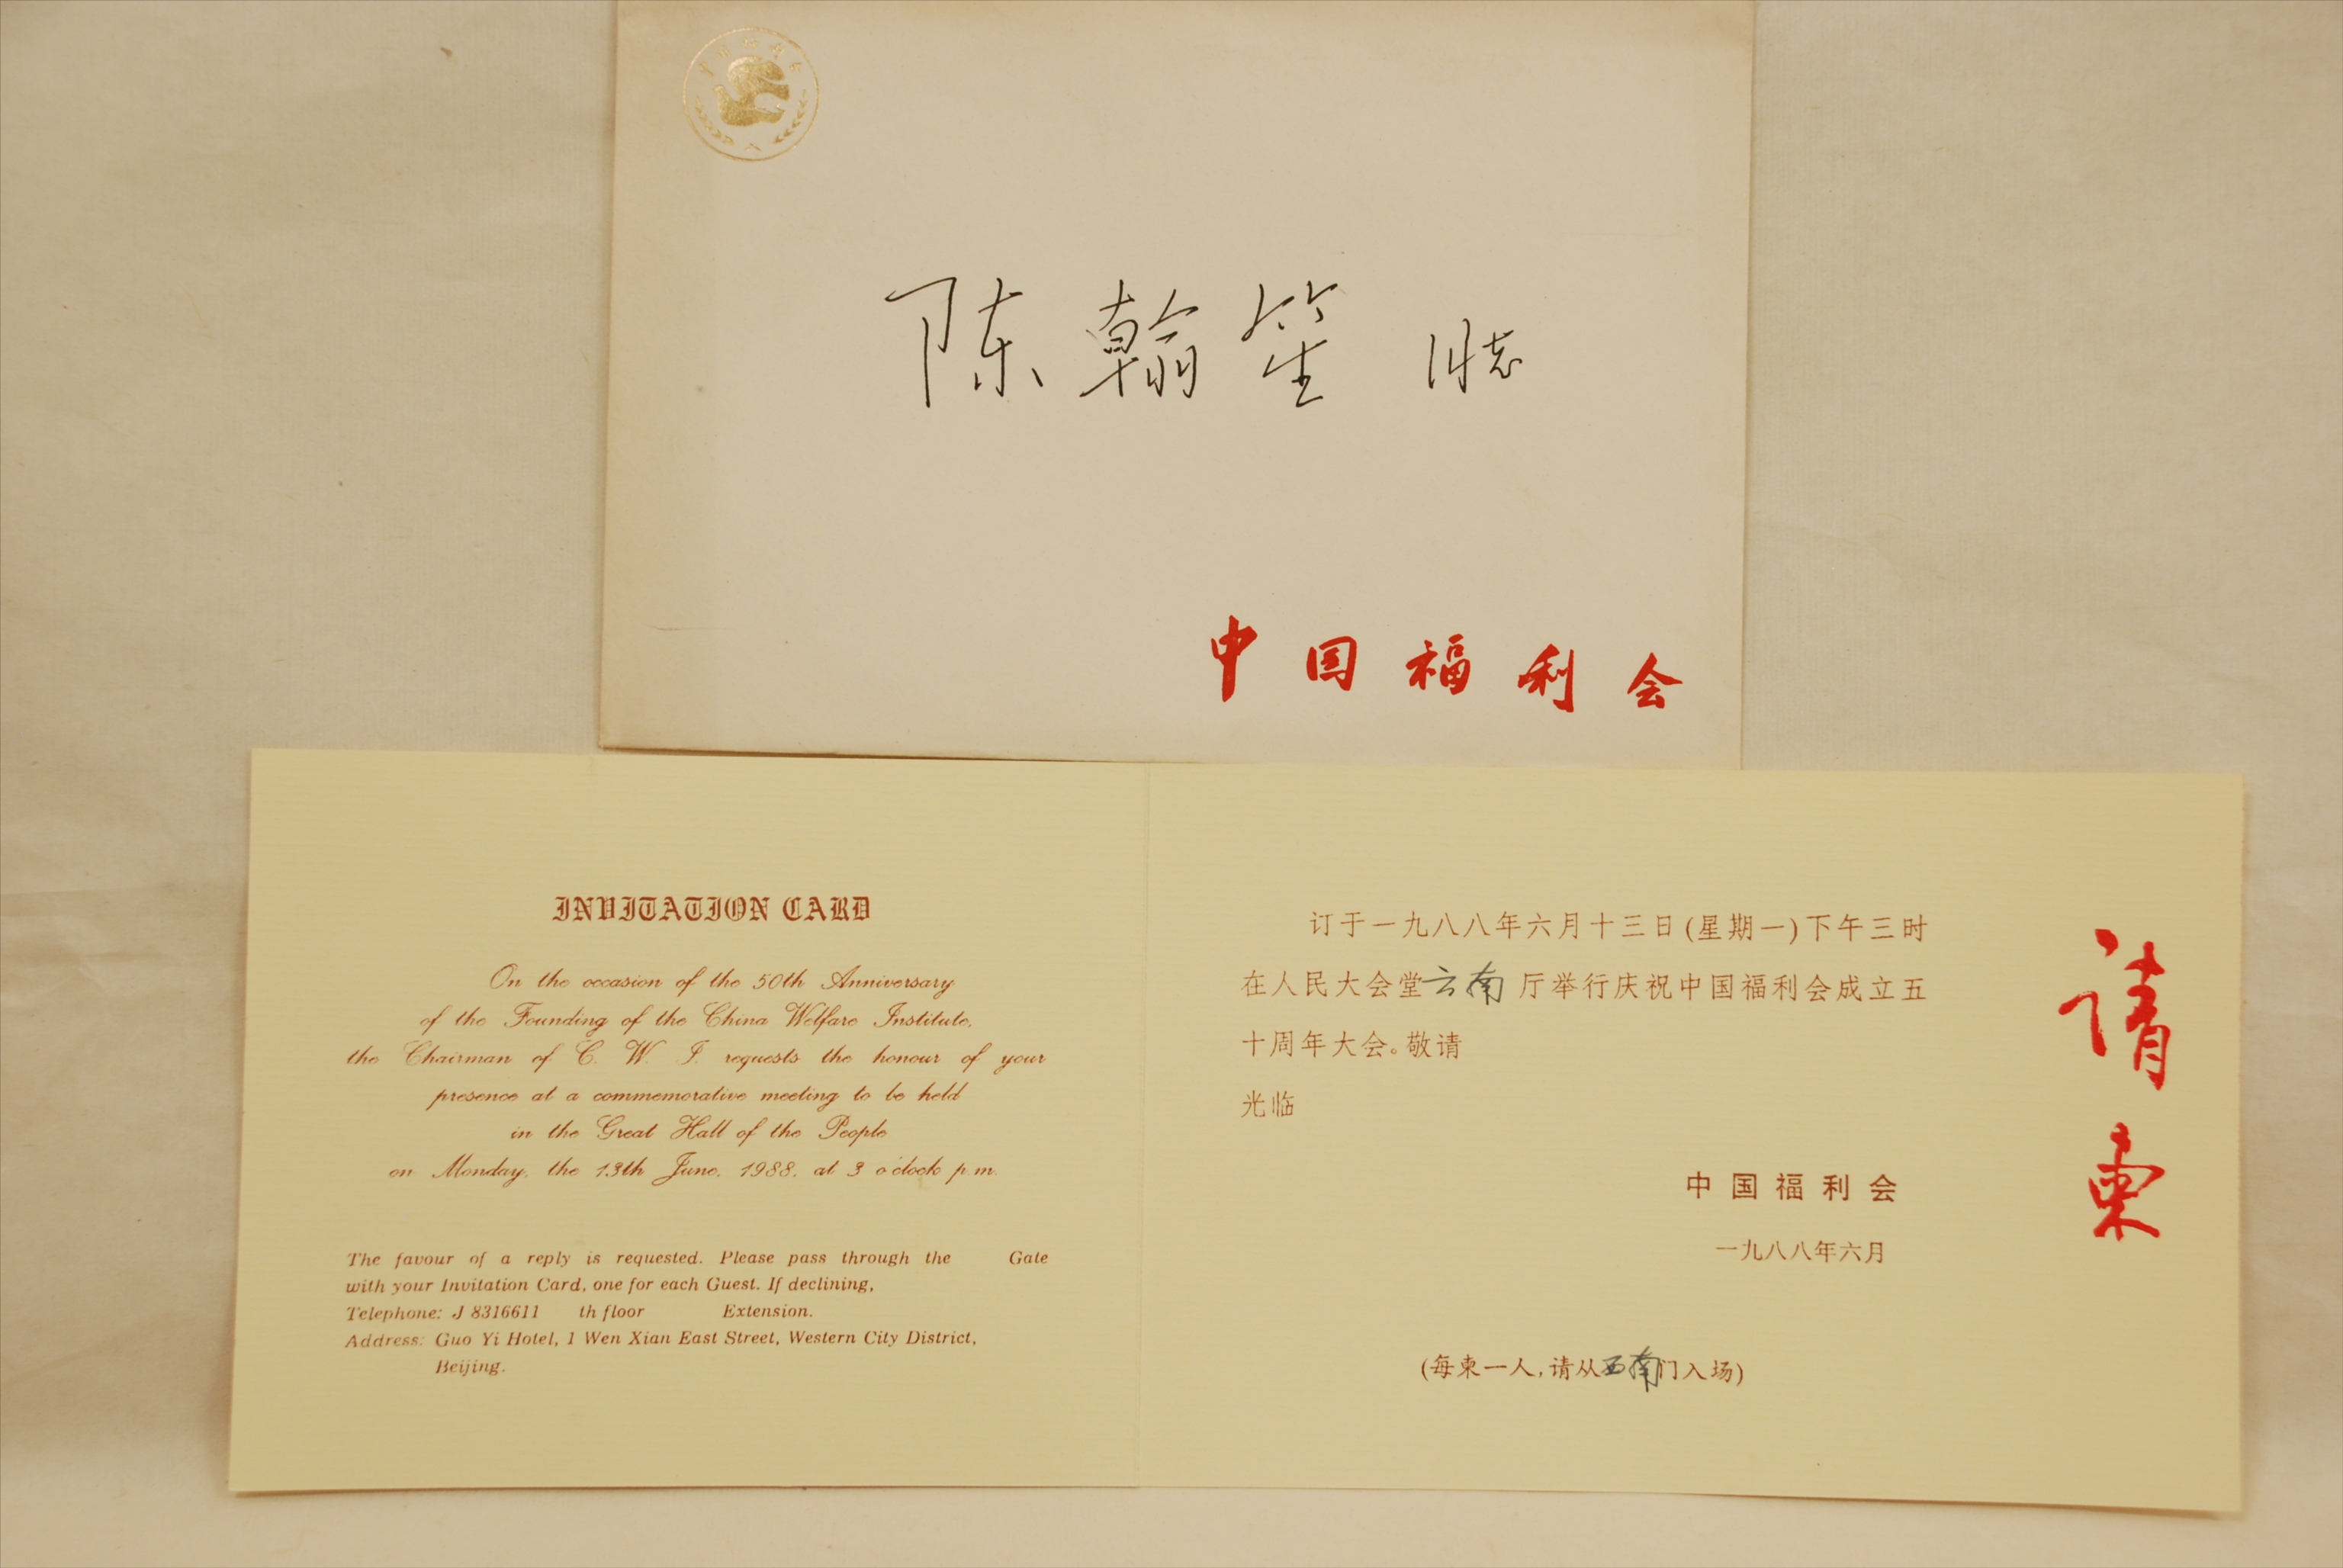 中国福利会
陈翰笙 同志
中国福利会
INVITATION CARD
On the occasion of the 50th Anniversary
of the Founding of the China Welfare Institute,
the Chairman of C. W. I. requests the honour of your
presence at a commemorative meeting to be held
in the Great Hall of the People
on Monday, the 13th June, 1988, at 3 o'clock p.m.
The favour of a reply is requested. Please pass through the Gate
with your Invitation Card, one for each Guest. If declining,
Telephone: J 8316611 th floor Extension.
Address: Guo Yi Hotel, 1 Wen Xian East Street, Western City District,
Beijing.
订于一九八八年六月十三日(星期一)下午三时
在人民大会堂云南厅举行庆祝中国福利会成立五
十周年大会。敬请
光临
中国福利会
一九八八年六月
(每柬一人,请从西南门入场)
请柬